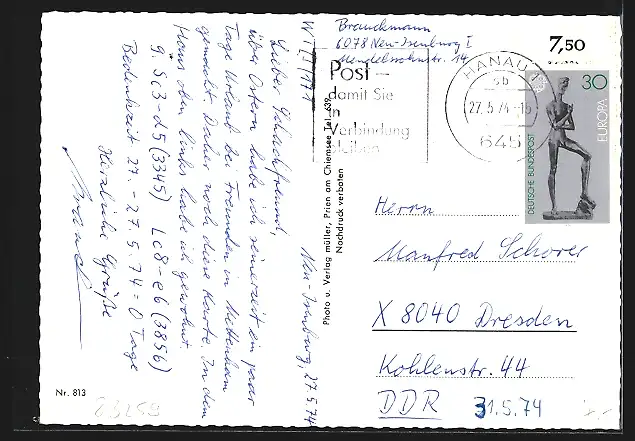 Brauckmann
6078 Neu-Isenburg I
Mendelssohnstr. 14
WT/I/171
Neu-Isenburg, 27.5.74
Lieber Schachfreund,
über Ostern habe ich seinerzeit ein paar
Tage Urlaub bei Freunden in Mettenham
gemacht. Daher noch diese Karte. In dem
Haus oben links habe ich gewohnt.
9. Sc3-d5 (3345) Lc8-e6 (3856)
Bedenkzeit: 27. - 27.5.74 = 0 Tage
Herzliche Grüße
Nr. 813
Photo u. Verlag müller, Prien am Chiemsee Tel. 639
Nachdruck verboten
Post –
damit Sie
in
Verbindung
bleiben
HANAU 1
27.5.74-15
645
7,50
30
EUROPA
DEUTSCHE BUNDESPOST
Herrn
Manfred Schorer
X 8040 Dresden
Kohlenstr. 44
DDR
31.5.74